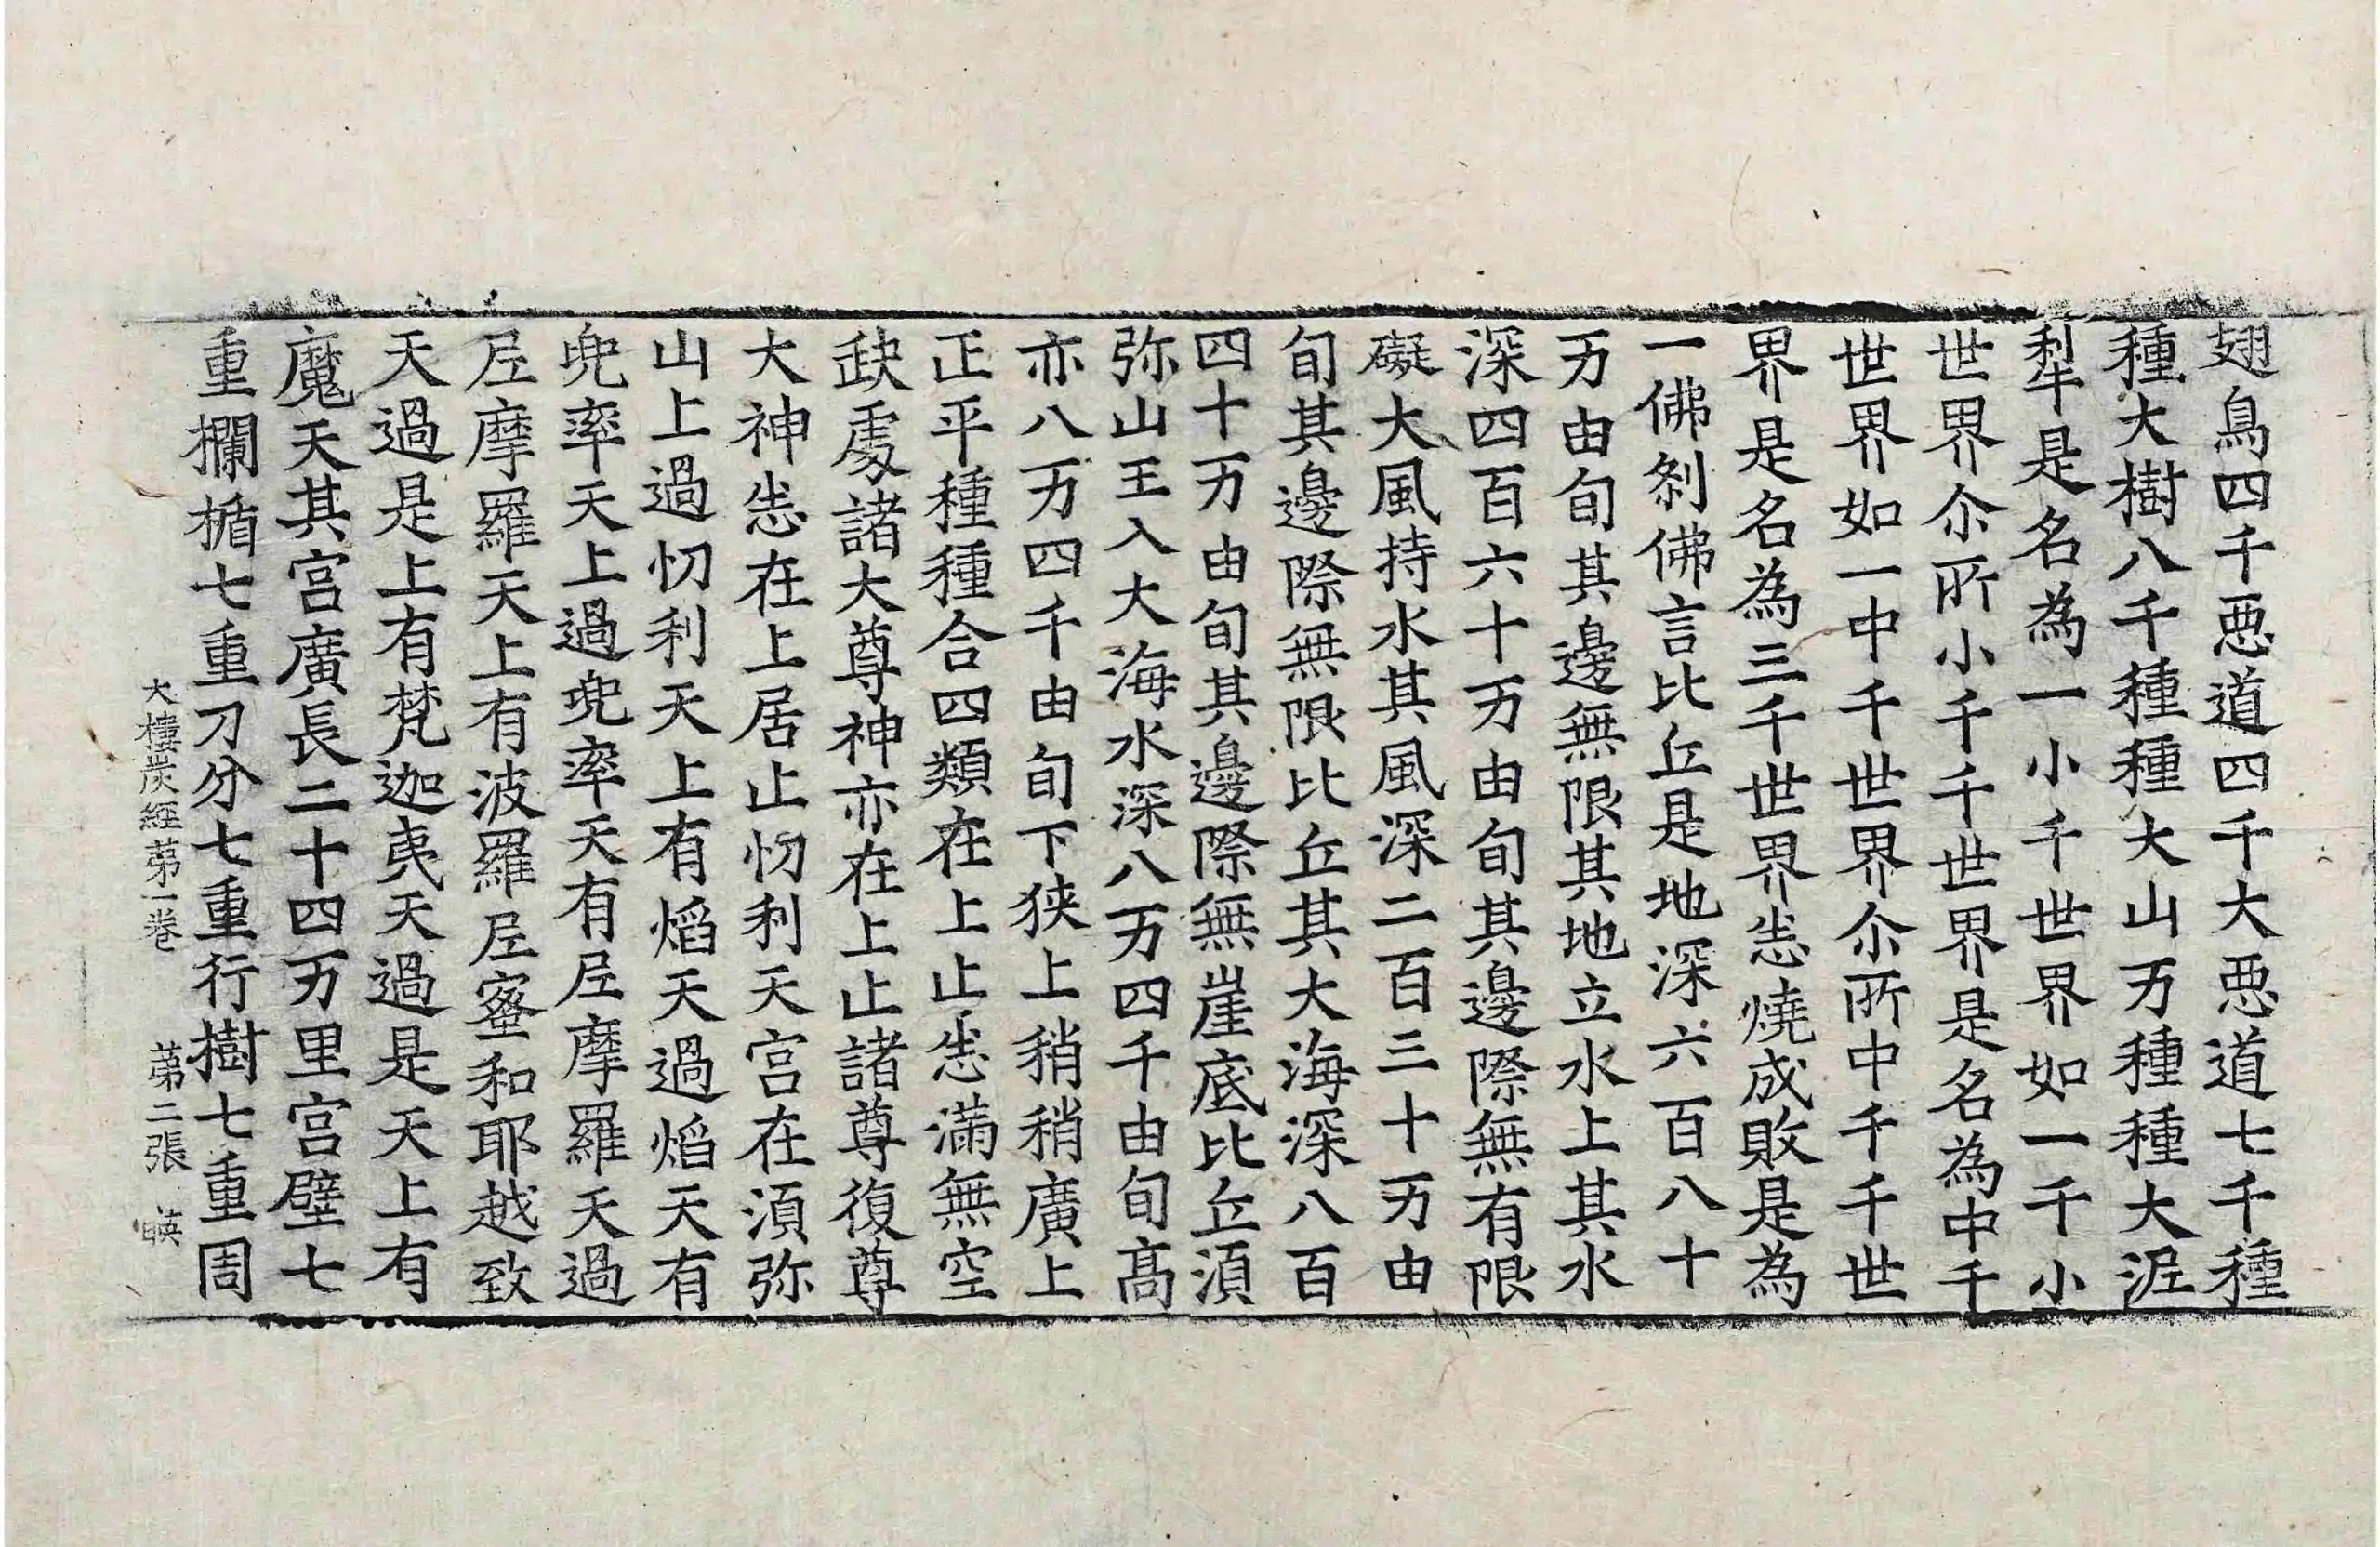 翅鳥四千悪道四千大悪道七千種
種大樹八千種種大山万種種大泥
犁是名為一小千世界如一千小
世界尒所小千千世界是名為中千
世界如一中千世界尒所中千千世
界是名為三千世界悉燒成敗是為
一佛剎佛言比丘是地深六百八十
万由旬其邊無限其地立水上其水
深四百六十万由旬其邊際無有限
礙大風持水其風深二百三十万由
旬其邊際無限比丘其大海深八百
四十万由旬其邊際無崖底比丘須
弥山王入大海水深八万四千由旬高
亦八万四千由旬下狹上稍稍廣上
正平種種合四類在上止悉滿無空
缺處諸大尊神亦在上止諸尊復尊
大神悉在上居止忉利天宫在須弥
山上過忉利天上有焰天過焰天有
兜率天上過兜率天有尼摩羅天過
尼摩羅天上有波羅尼蜜和耶越致
天過是上有梵迦夷天過是天上有
魔天其宫廣長二十四万里宫壁七
重欄楯七重刀分七重行樹七重周
大樓炭經苐一卷 苐二張 暎